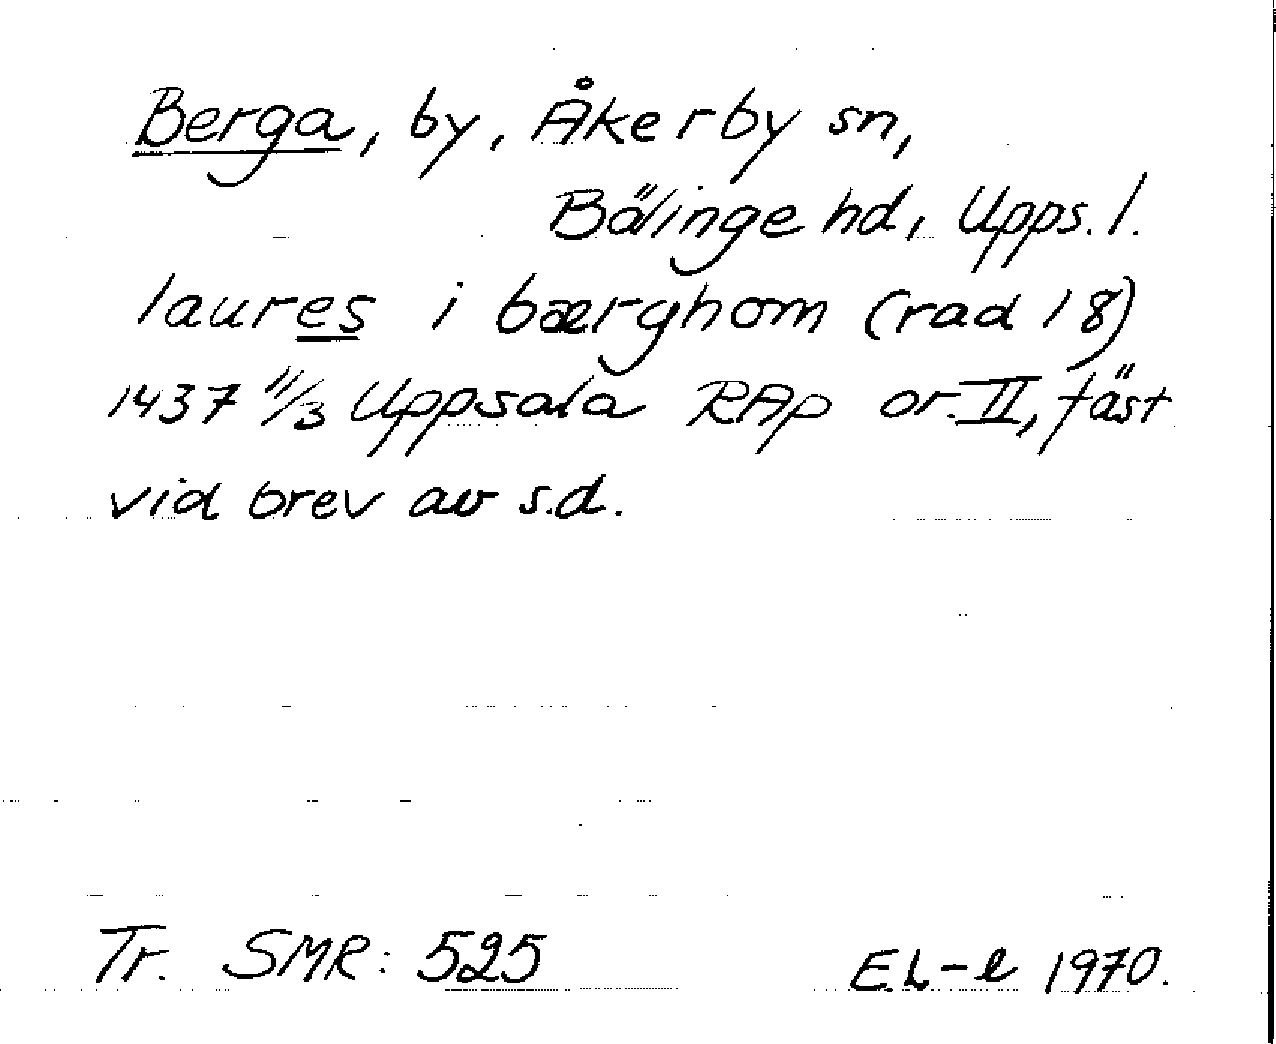 Berga, by, Åkerby sn,
Bälinge hd, Upps. l.
laures i bærghom (rad 18)
1437 11/3 Uppsala RAp or. II, fäst
vid brev av s.d.
Tr. SMR: 525 E.L-e 1970.